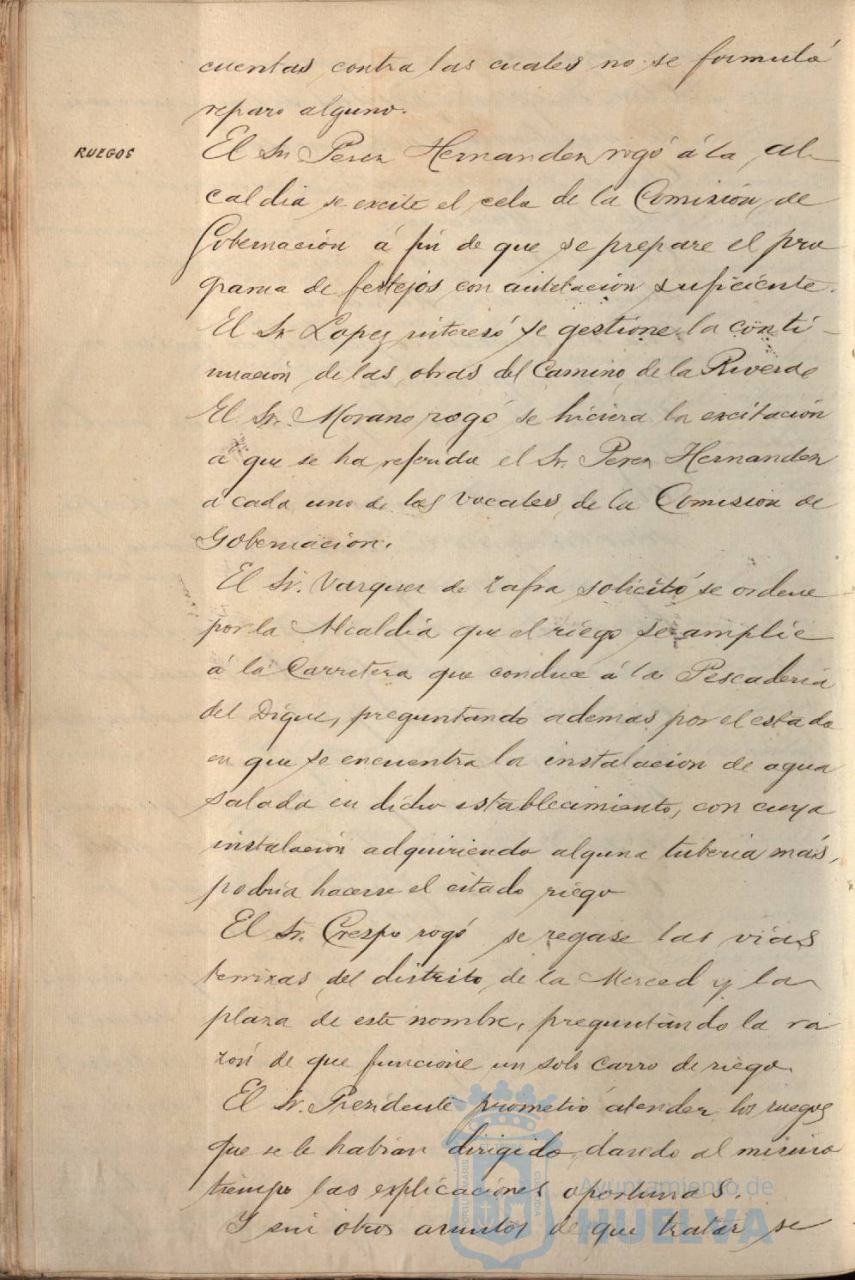 cuentas contra las cuales no se formuló
reparo alguno.
RUEGOS
El Sr. Perez Hernandez rogó á la Al-
caldia se excite el celo de la Comisión de
Gobernación á fin de que se prepare el pro
grama de festejos con antelación suficiente.
El Sr Lopez interesó se gestione la conti-
nuación de las obras del Camino de la Rivera
El Sr. Morano rogó se hiciera la excitación
á que se ha referido el Sr. Perez Hernandez
a cada uno de los vocales de la Comision de
Gobernacion.
El Sr. Vazquez de Zafra solicitó se ordene
por la Alcaldia que el riego se amplie
á la Carretera que conduce á la Pescaderia
del Dique, preguntando ademas por el estado
en que se encuentra la instalacion de agua
salada en dicho establecimiento, con cuya
instalación adquiriendo alguna tuberia más,
podria hacerse el citado riego
El Sr. Crespo rogó se regase las vias
terrizas del distrito de la Merced y la
plaza de este nombre, preguntando la ra
zón de que funcione un solo carro de riego.
El Sr. Presidente prometió atender los ruegos
que se le habian dirigido, dando al mismo
tiempo las explicaciones oportunas.
Y sin otros asuntos de que tratar, se
Ayuntamiento de
HUELVA